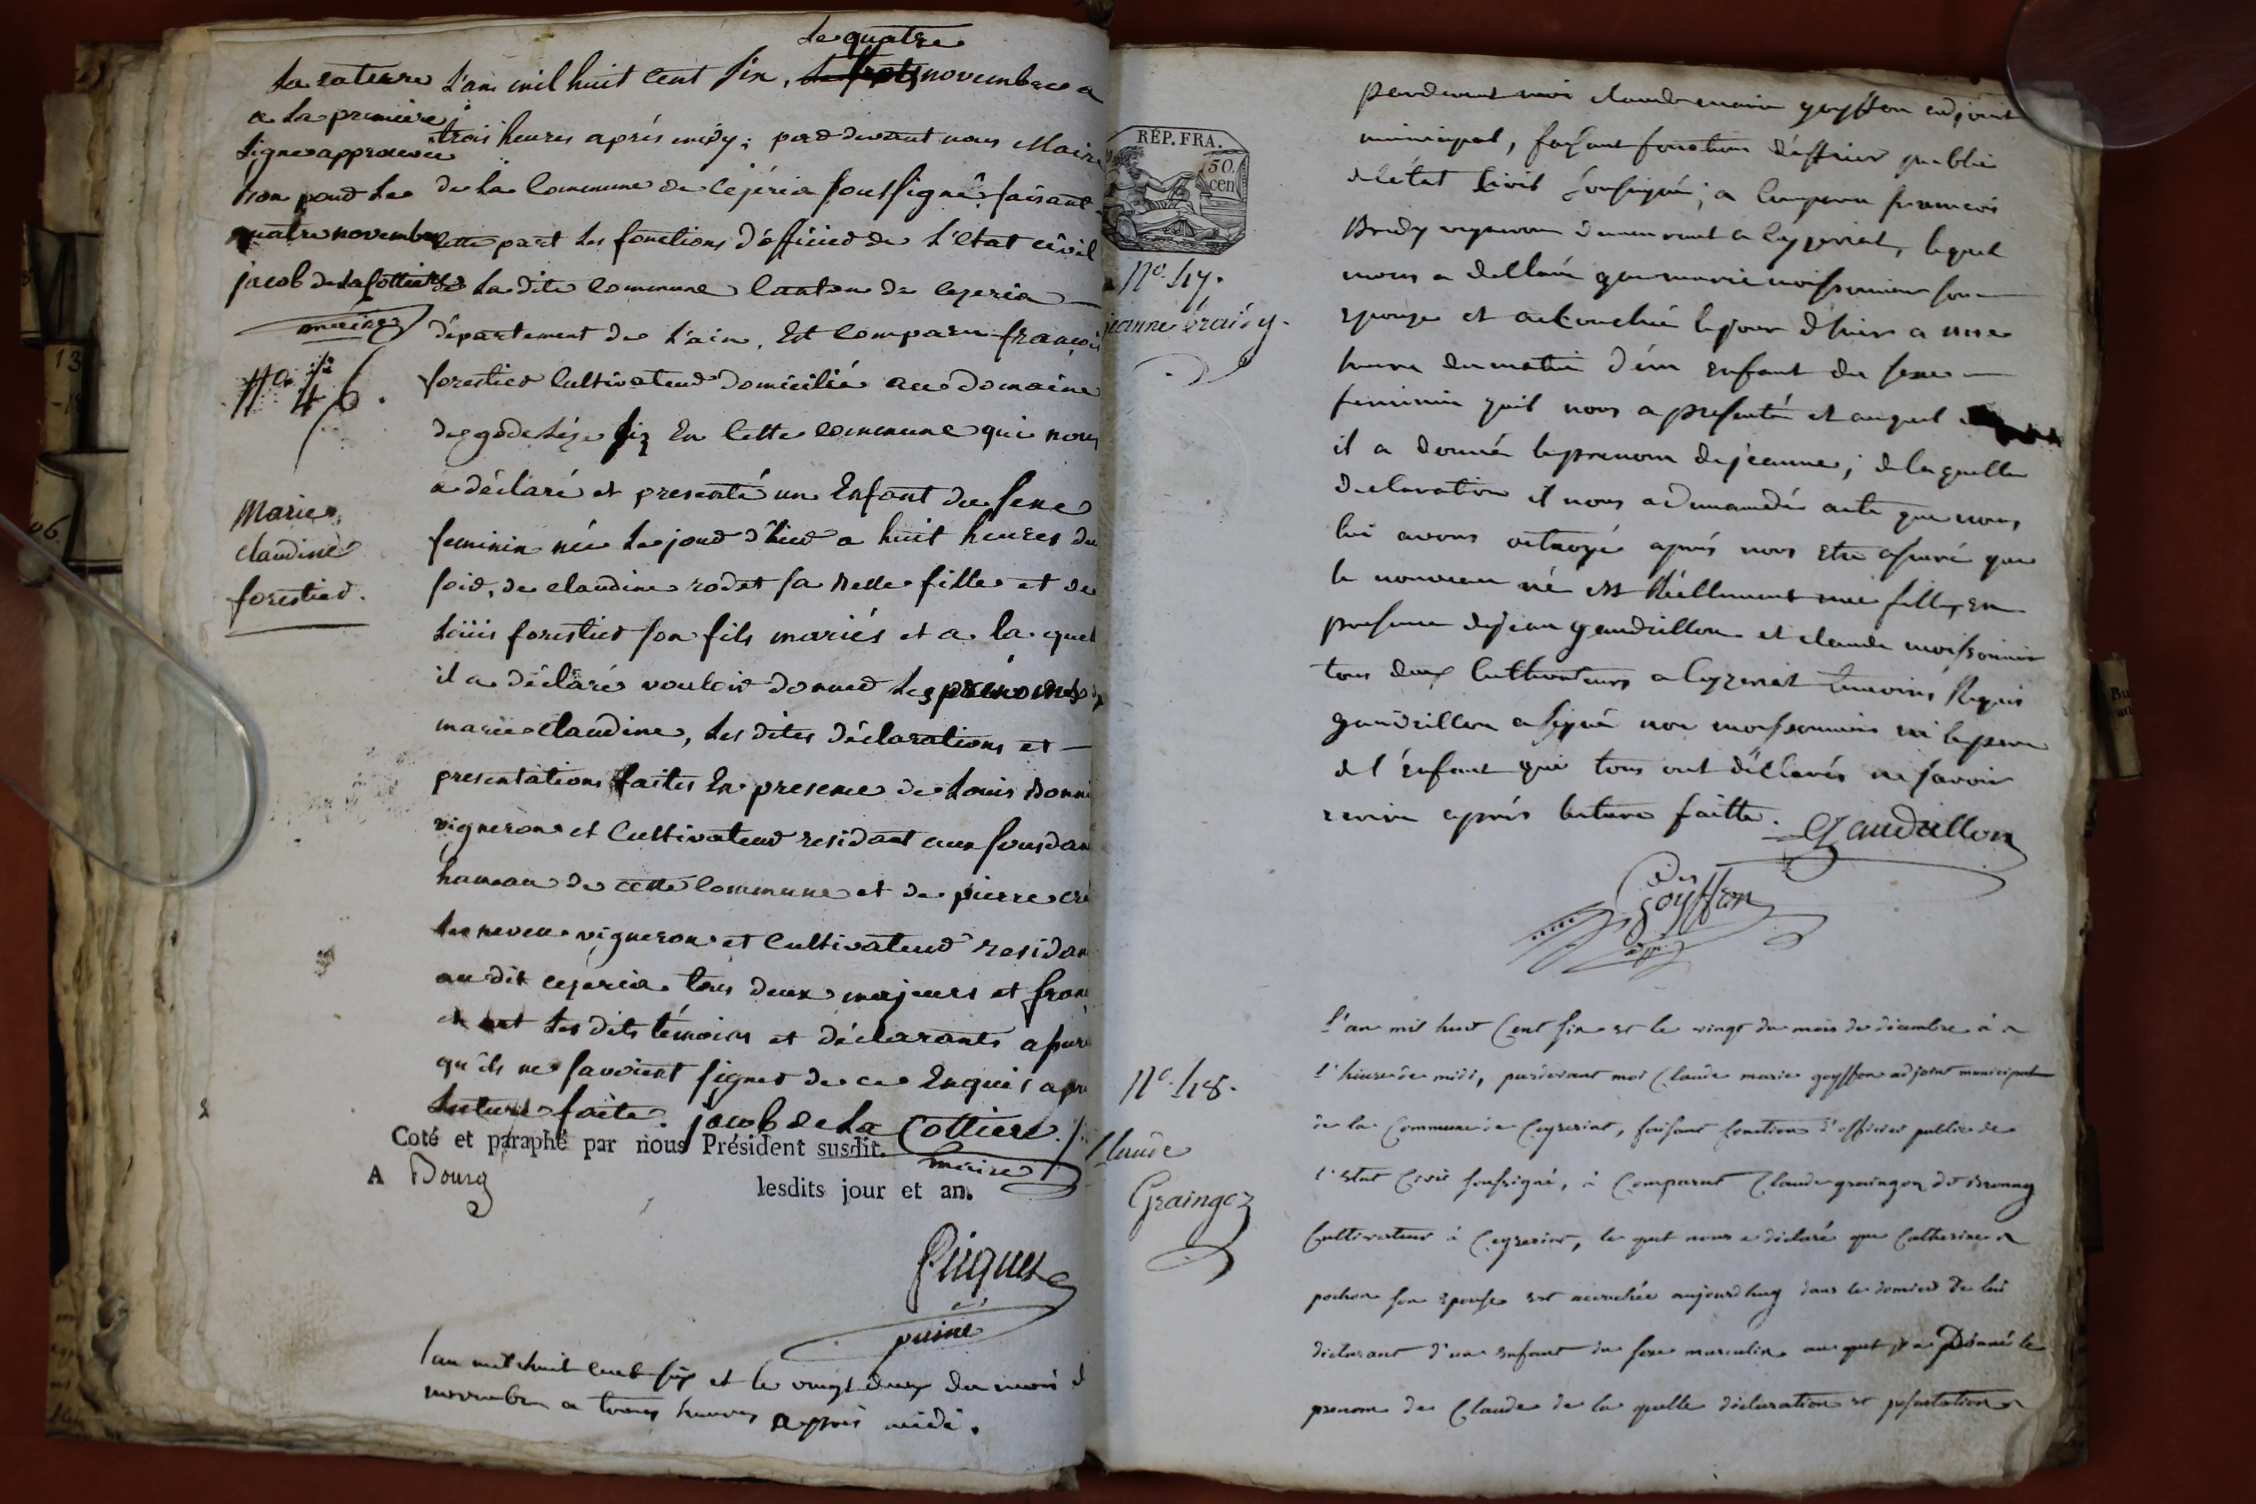 le quatre
L'an mil huit cent six, novembre a
la rature
a la premiere
ligne approuvée
bon pour le
quatre novembre
jacob de la Cottiere
maire
trois heures après midy; par devant nous Maire
de la Commune de Cejéria soussigné faisant
cette part les fonctions d'officier de l'état civil
de la dite Commune Canton de Cejeria
département de l'ain, Est Comparu françois
forestier Cultivateur domicilié au domaine
en cette commune qui nous
a déclaré et presenté un Enfant du sexe
feminin née le jour d'hier a huit heures du
soir, de claudine rodet sa belle fille et de
Loüis forestier son fils mariés et a la quel
il a déclaré vouloir donner les prénoms de
marie Claudine, les dites déclarations et
presentations faites En presence de Louis
vigneron et Cultivateur residant aux
hameau de cette Commune et de pierre
le neveu vigneron et Cultivateur residan
au dit cejeria tous deux majeurs et
et ont les dits témoins et déclarants
qu'ils ne savoient signer de ce Enquis
lecture faite. jacob de La Cottiere
maire
No. 46.
Marie
claudine
forestier.
Coté et paraphé par nous Président susdit.
A Bourg lesdits jour et an.
puiné
l'an mil huit cent six et le vingt deux du mois d
novembre a trois heures après midi.
REP. FRA.
50
cen
No. 47.
jeanne braidy.
pardevant moi claude marie goyffon adjoint
municipal, faisant fonction d'officier public
de l'état Civil soussigné; a Comparu francois
Bridy vigneron demeurant a Ceyzeriat, lequel
nous a déclaré que marie moissonnier son
epouse et accouchée le jour d'hier a une
heure du matin d'un enfant du sexe
feminin quil nous a presenté et auquel
il a donné le prenom de jeanne; de laquelle
declaration il nous a demandé acte que nous
lui avons octroyé après nous etre assuré que
le nouveau né est Réellement une fille, en
presence de jean gaudrillon et claude moissonnier
tous deux Cultivateurs a Ceyzeriat temoins Requis
gaudrillon a signé non moissonnier ni le pere
de l'enfant qui tous ont déclarés ne savoir
ecrire après lecture faitte. Gaudrillon
Goyffon
adj.
No. 48.
Claude
Graingez
L'an mil huit Cent six et le vingt du mois de décembre à
l'heure de midi, pardevant moi Claude marie goyffon adjoint municipal
de la Commune de Ceyzeriat, faisant fonction d'officier public de
l'etat Civil soussigné, à Comparut Claude graingez dit
Cultivateur à Ceyzeriat, le quel nous a déclaré que Catherine
pochon son epouse est accouchée aujourdhuy dans le domicile de lui
déclarant d'un enfant du sexe masculin au quel il a Donné le
prenom de Claude de la quelle déclaration et presentation